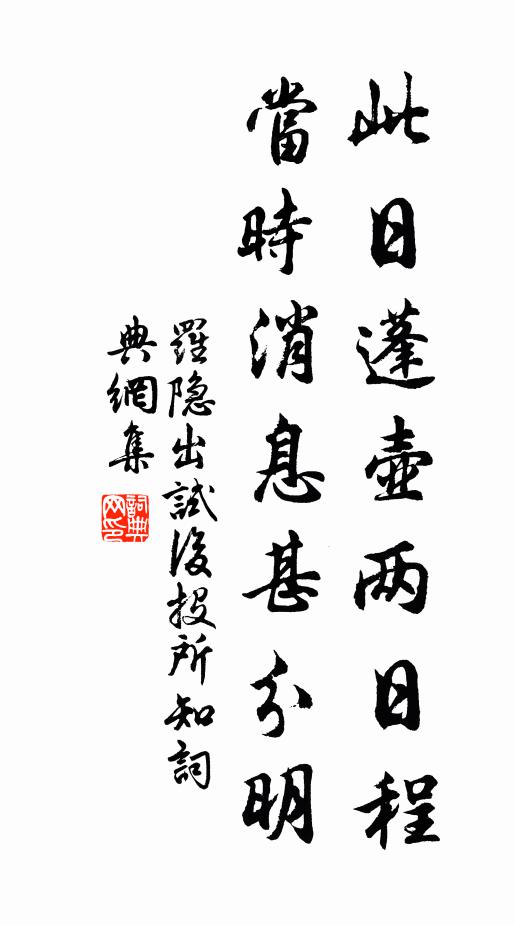 此日蓬壺两日程
當時消息甚分明
羅隐出試後投所知詞
典網集
詞典
网印